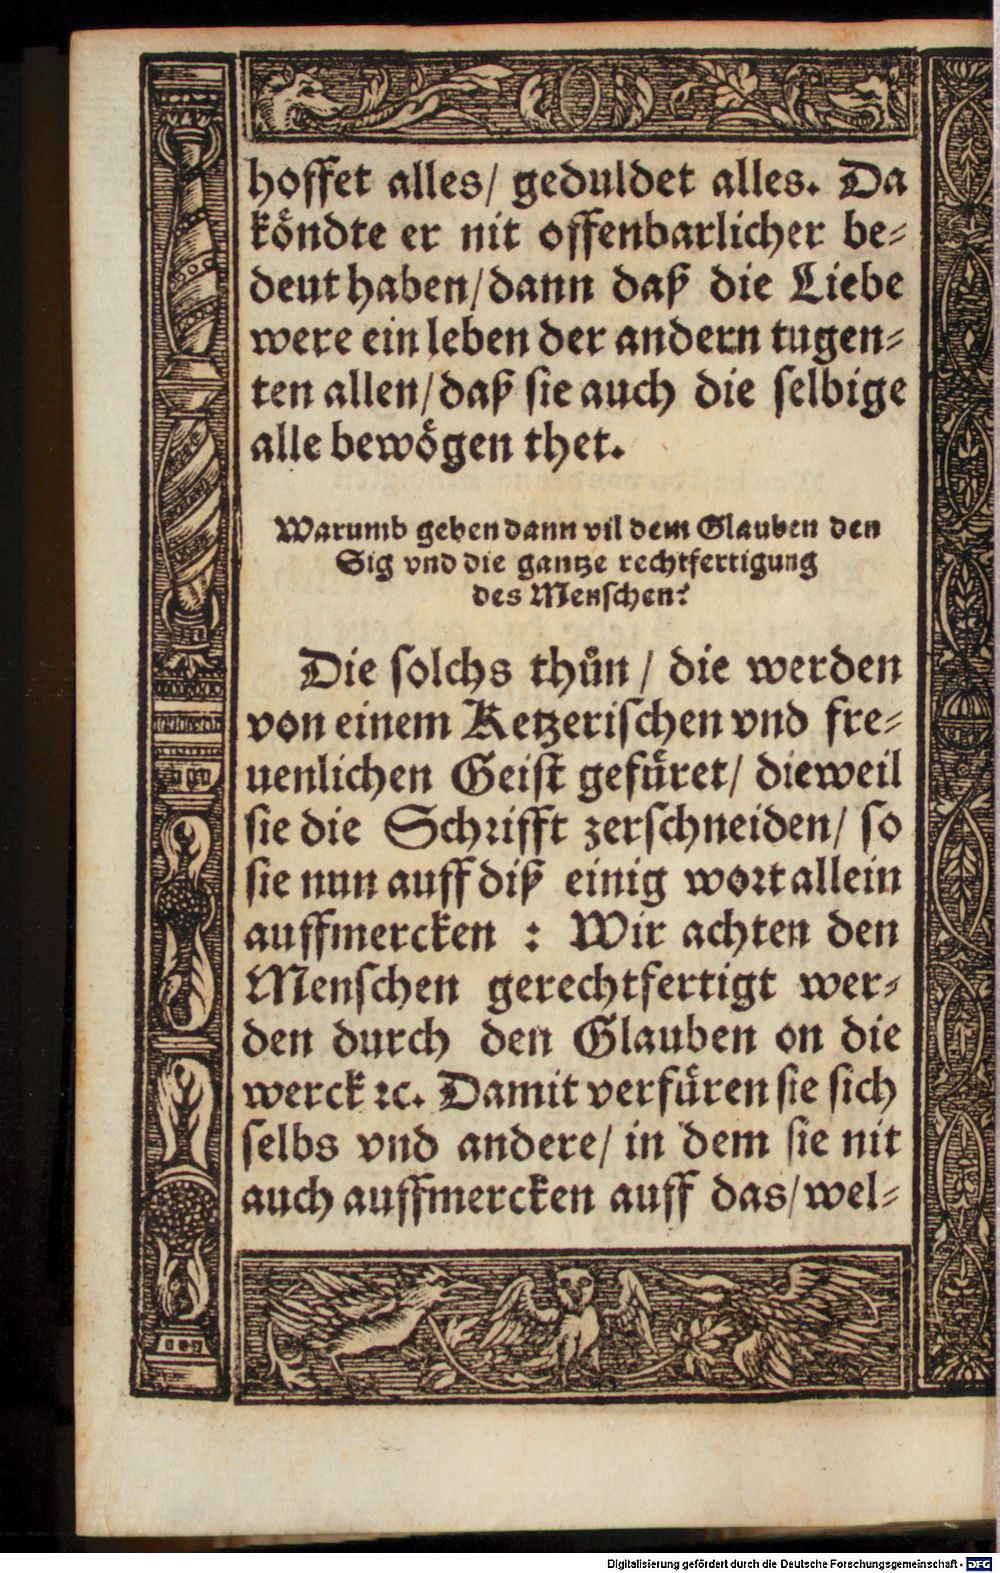 hoffet alles/ geduldet alles. Da
köndte er nit offenbarlicher be⸗
deut haben/dann daß die Liebe
were ein leben der andern tugen⸗
ten allen/daß sie auch die selbige
alle bewögen thet.
Warumb geben dann vil dem Glauben den
Sig vnd die gantze rechtfertigung
des Menschen?
Die solchs thůn / die werden
von einem Ketzerischen vnd fre⸗
uenlichen Geist gefüret/ dieweil
sie die Schrifft zerschneiden/ so
sie nun auff diß einig wort allein
auffmercken : Wir achten den
Menschen gerechtfertigt wer⸗
den durch den Glauben on die
werck ꝛc. Damit verfüren sie sich
selbs vnd andere/ in dem sie nit
auch auffmercken auff das/wel⸗
Digitalisierung gefördert durch die Deutsche Forschungsgemeinschaft - DFG